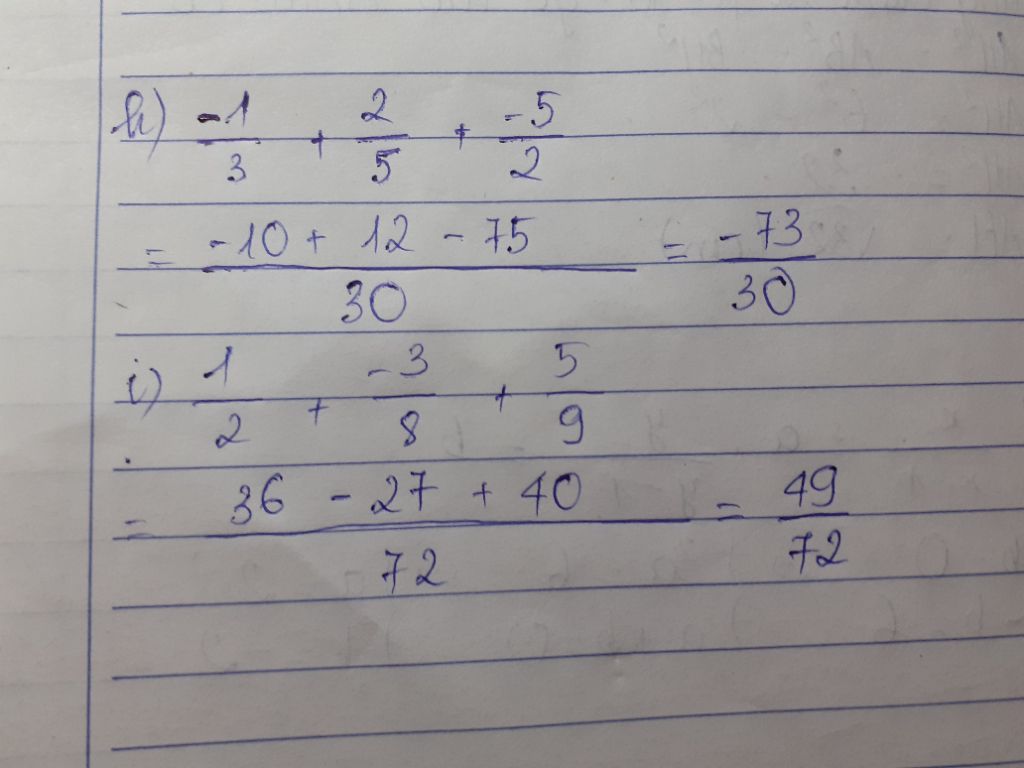 h) -1/3 + 2/5 + -5/2
= -10 + 12 - 75 / 30 = -73/30
i) 1/2 + -3/8 + 5/9
= 36 - 27 + 40 / 72 = 49/72